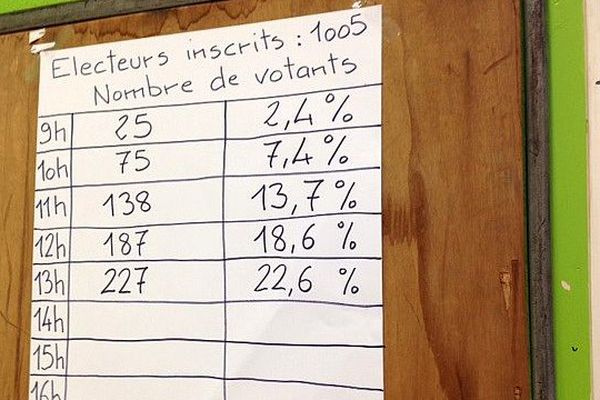 Electeurs inscrits : 1005
Nombre de votants
9h 25 2,4 %
10h 75 7,4 %
11h 138 13,7 %
12h 187 18,6 %
13h 227 22,6 %
14h
15h
16h